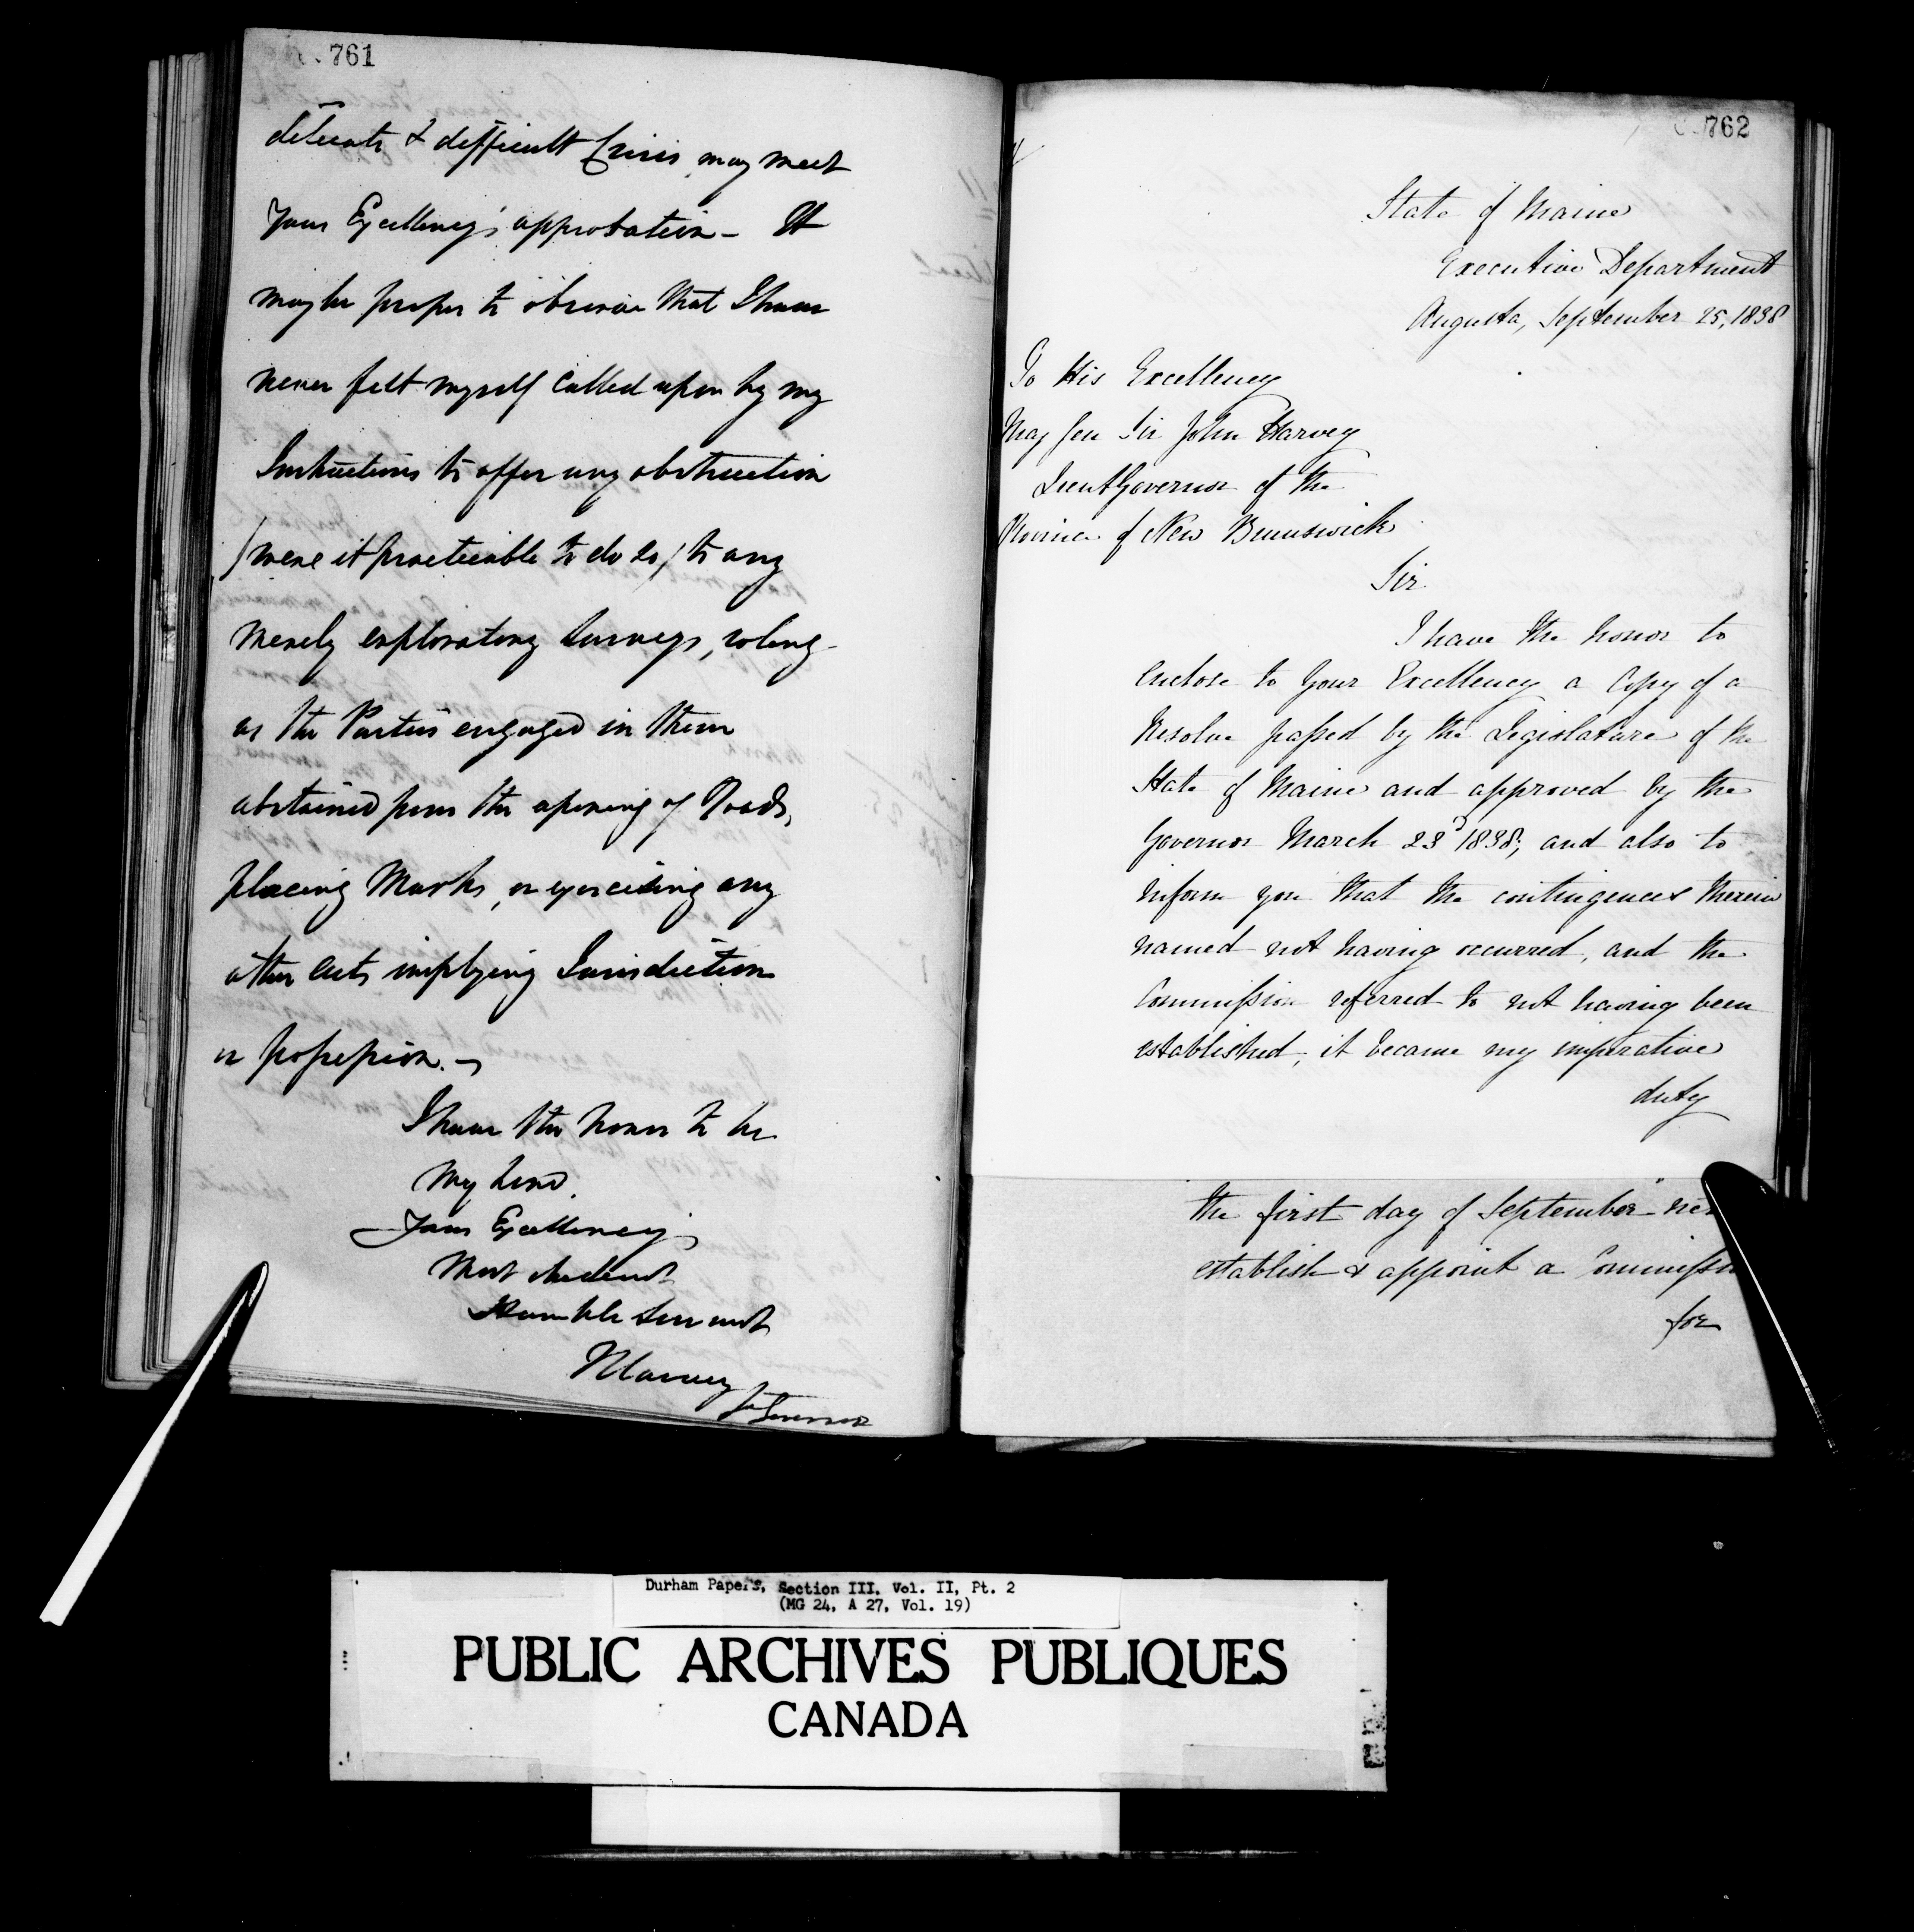 761
delicate & difficult Crisis, may meet
Your Excellency's approbation – It
may be proper to observe that I have
never felt myself called upon by my
Instructions to offer any obstruction
(were it practicable to do so) to any
merely exploratory Surveys, so long
as the Parties engaged in them
abstained from the opening of Roads,
placing Marks, or exercising any
other acts implying Jurisdiction
or possession. –
I have the honor to be
My Lord,
Your Excellency's
Most obedient
Humble Servant
J Harvey
Lt Governor
762
State of Maine
Executive Department
Augusta, September 25, 1838
To His Excellency
Maj Gen Sir John Harvey
Lieut Governor of the
Province of New Brunswick
Sir
I have the honor to
enclose to Your Excellency a Copy of a
Resolve passed by the Legislature of the
State of Maine and approved by the
Governor March 23d 1838; and also to
inform you that the contingences therein
named not having occurred, and the
Commission referred to not having been
established, it became my imperative
duty
the first day of September
establish & appoint a
for
Durham Papers, Section III, Vol. II, Pt. 2
(MG 24, A 27, Vol. 19)
PUBLIC ARCHIVES PUBLIQUES
CANADA